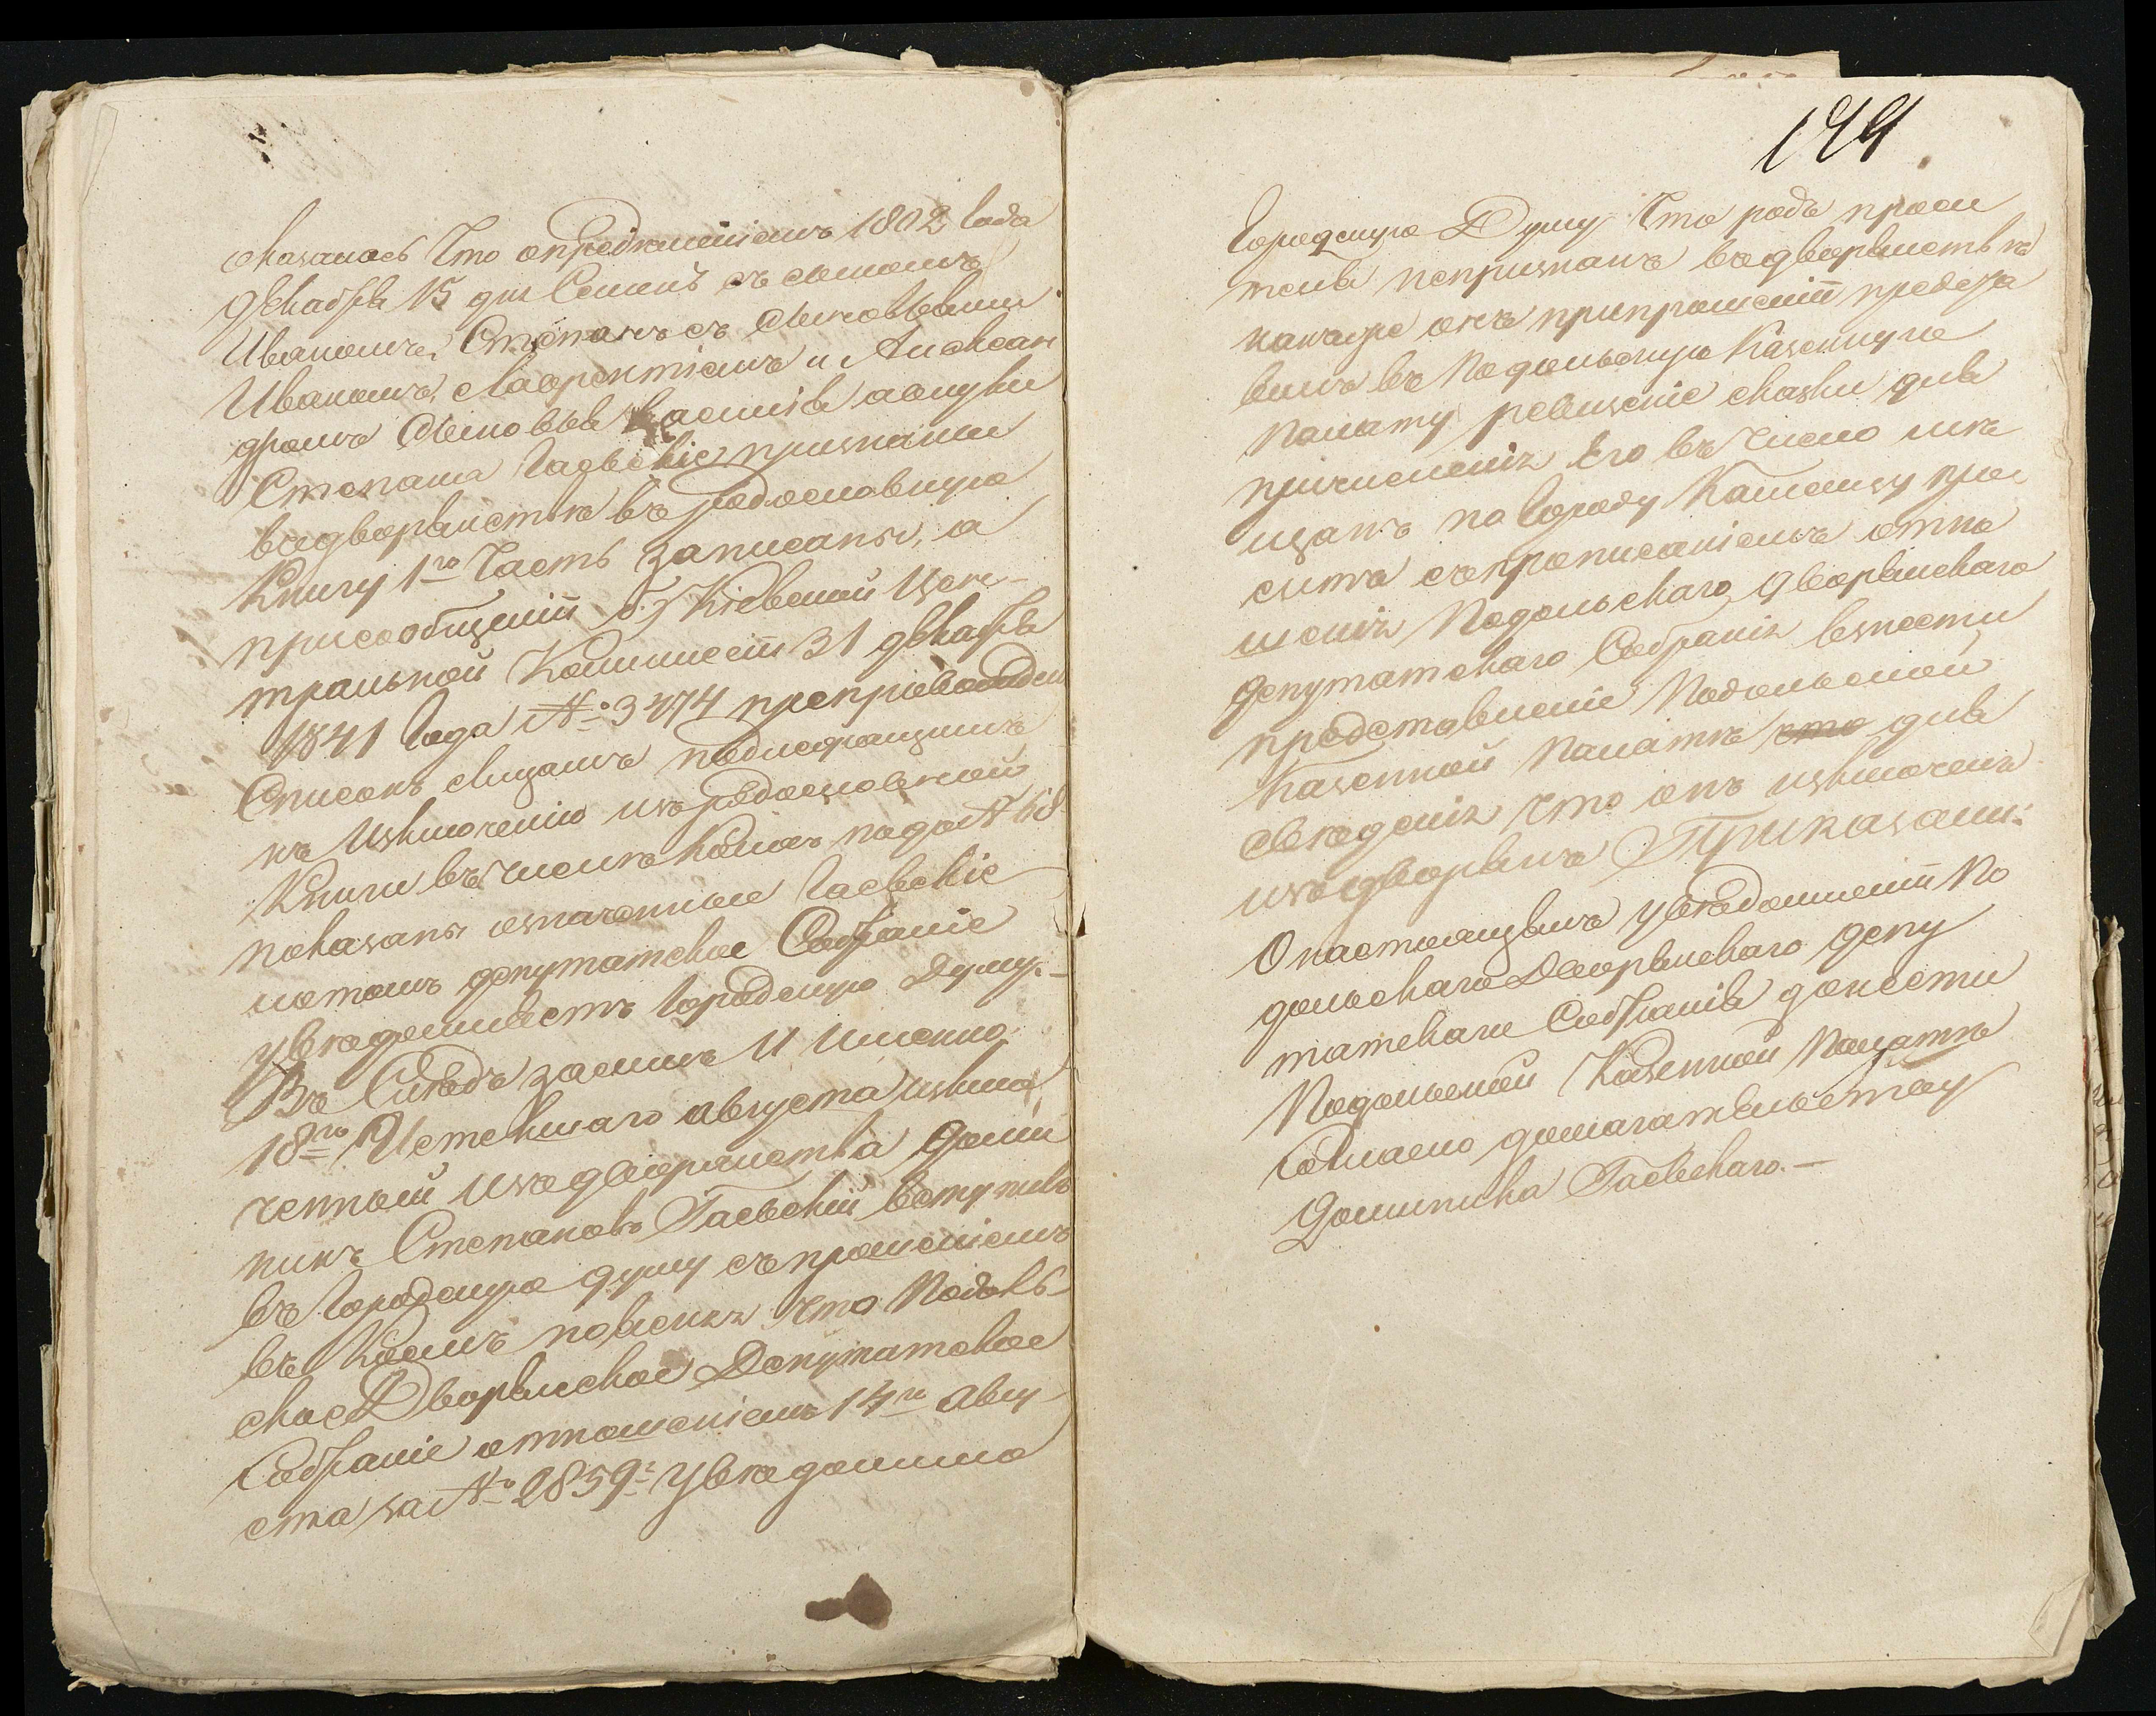 оказалось что определеніемъ 1802 года
декабря 15 дня Семенъ съ сыномъ
Иваномъ, Степанъ съ сыновьями
Иваномъ, Лаврентіемъ и Алексан
дромъ сыновья Василія а внуки
Степана Гаевскіе признаны
въ дворянствѣ въ родословную
Книгу 1ю Часть записаны, а
при сообщеніи Кіевской Цен-
тральной Коммисіи 31 декабря
1841 года № 3474 препровожден
Списокъ лицамъ подлежащимъ
къ изключенію изъ родословной
Книги въ числѣ коихъ подъ № 618
показаны означенные Гаевскіе
о томъ депутатское Собраніе
увѣдомляетъ Городскую Думу.-
Въ Слѣдъ засимъ и именно
18го Истекшаго августа изклю
ченный изъ дворянства Доми
никъ Степановъ Гаевскій вступилъ
въ Городскую думу съ прошеніемъ
въ коемъ пояснилъ что Подоль-
ское Дворянское Депутатское
Собраніе отношеніемъ 14го Авгу
ста за № 2859 увѣдомило
144
Городскую Думу что родъ проси
теля непризнанъ въ дворянствѣ
какъ онъ при прошеніи предъя
вилъ въ Подольскую Казенную
Палату ревизскіе сказки для
причисленія его въ число мѣ
щанъ по Городу Каменцу про
ситъ съ прописаніемъ отно
шенія Подольскаго дворянскаго
депутатскаго Собранія взнести
представленіе Подольской
Казенной Палатѣ для
свѣденія что онъ изключенъ
изъ дворянъ Приказали:
О настоящемъ увѣдомленіи По
дольскаго Дворянскаго депу
татскаго Собранія донести
Подольской Казенной Палатѣ
согласно домагательству
Доминика Гаевскаго.-